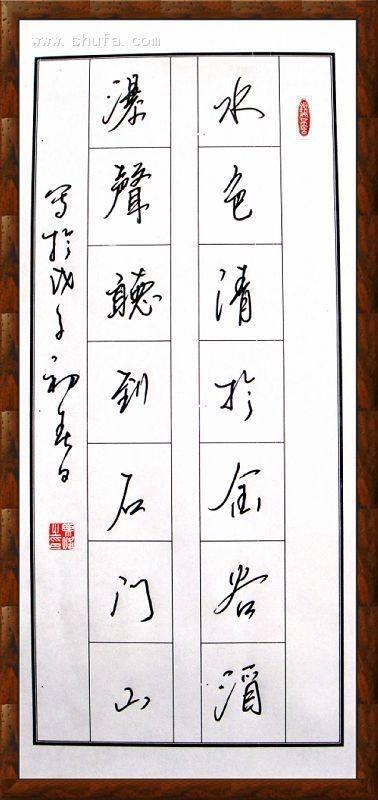 www.shufa.com
水色清於金谷
瀑聲聽到石门山
写於戊子初春日